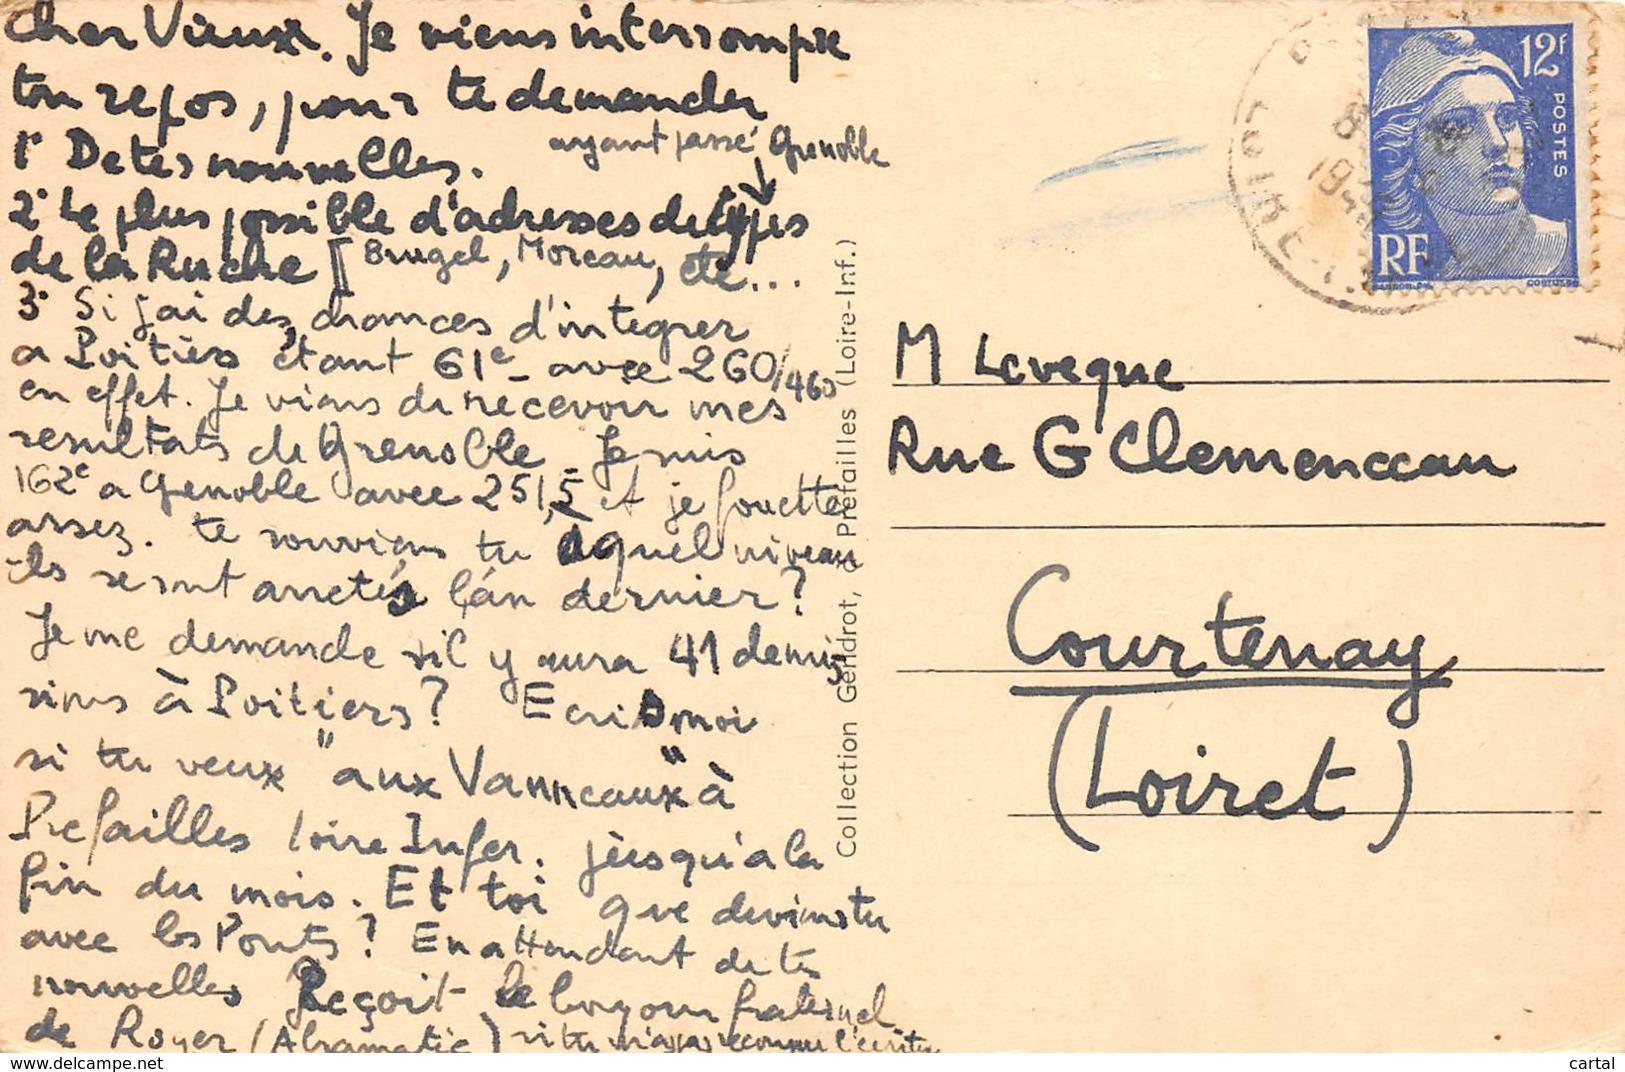 Cher Vieux. Je viens interrompre
ton repos, pour te demander
1° De tes nouvelles.
ayant passé Grenoble
2° Le plus possible d'adresses de types
de la Ruche [Brugel, Moreau, etc...
3° Si j'ai des chances d'integrer
a Poitiers étant 61e - avec 260/460
en effet. Je viens de recevoir mes
resultats de Grenoble Je suis
162e a Grenoble avec 251,5 et je fouette
assez. te souviens tu a quel niveau
ils se sont arretés l'an dernier?
Je me demande s'il y aura 41 demis
sions à Poitiers? Ecris moi
si tu veux "aux Vanneaux" à
Prefailles Loire Infer. jusqu'a la
fin du mois. Et toi que deviens tu
avec les Ponts? En attendant de tes
nouvelles Reçoit le bonjour fraternel
de Royer (Abramatic) si tu n'as pas reconnu l'écriture
Collection Gendrot, à Préfailles (Loire-Inf.)
12f
POSTES
RF
LOIRE
8
194
M Leveque
Rue G Clemenceau
Courtenay
(Loiret)
www.delcampe.net
cartal